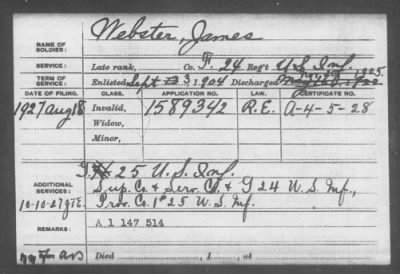 NAME OF SOLDIER: Webster, James
SERVICE: Late rank, Co. F. 24 Reg't U.S. Inf.
TERM OF SERVICE: Enlisted Sept 3, 1904 Discharged 1905.
DATE OF FILING. CLASS. APPLICATION NO. LAW. CERTIFICATE NO.
1927 Aug 18 Invalid, 1589342 R.E. A-4-5-28
Widow,
Minor,
25 U.S. Inf.
ADDITIONAL SERVICES: Sup. Co. & Serv. Co. & G 24 U.S. Inf.,
10-10-27 Prov. Co. 1st 25 U.S. Inf.
REMARKS: A 1 147 514
Died , 1 , at